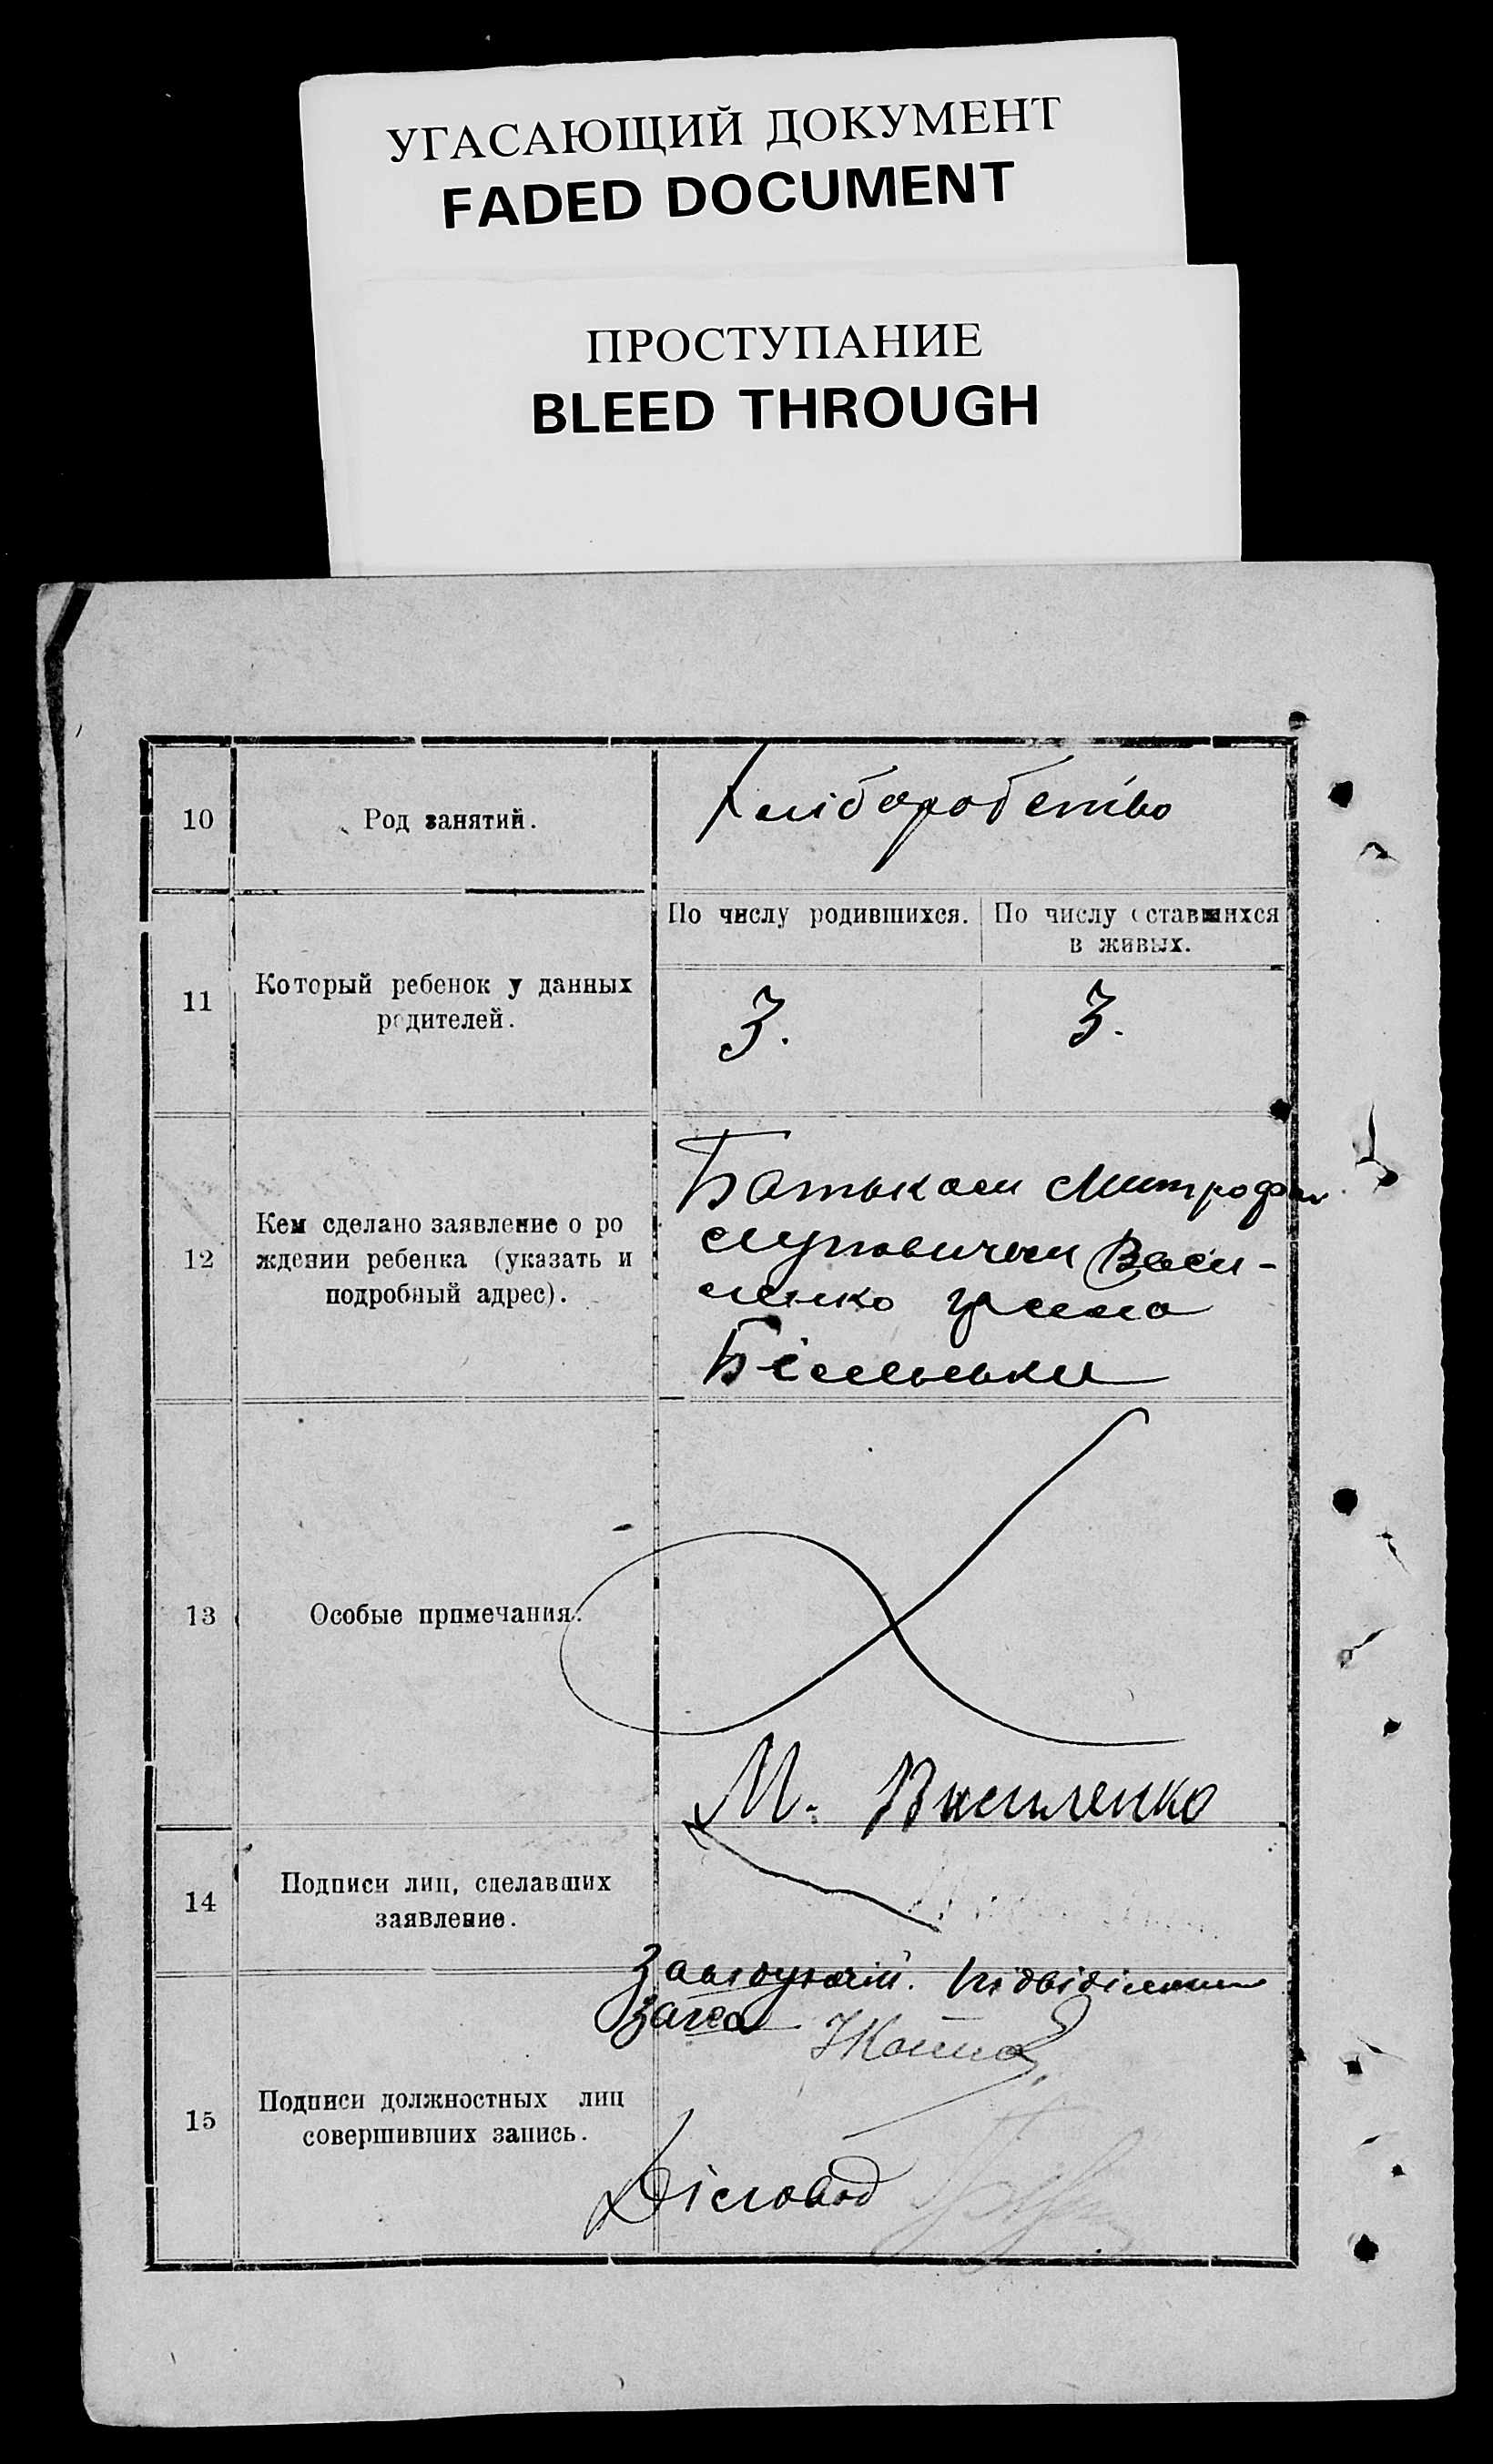 УГАСАЮЩИЙ ДОКУМЕНТ
FADED DOCUMENT
ПРОСТУПАНИЕ
BLEED THROUGH
10
Род занятий.
Хліборобство
11
Который ребенок у данных
родителей.
По числу родившихся.
По числу оставшихся
в живых.
3.
3.
12
Кем сделано заявление о ро
ждении ребенка (указать и
подробный адрес).
Батьком Митрофан
Васи-
ленко
Більськи
13
Особые примечания.
М. Василенко
14
Подписи лиц, сделавших
заявление.
15
Подписи должностных лиц
совершивших запись.
Завідуючий. підвідділом
Загса
Діловод